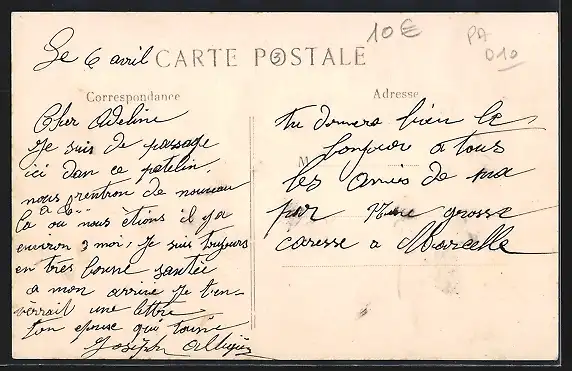 Le 6 avril
CARTE POSTALE
10€
PA
D10
Correspondance
Adresse
Cher Adeline
Je suis de passage
ici dan ce patelin.
nous rentron de nouveau
la ou nous étions il y a
environ 3 moi. Je suis toujours
en très bonne santée
a mon arrivée Je t'en-
verrait une lettre
ton epouse qui
Joseph
tu donnera bien le
bonjour a tous
M
les amies de ma
par Une grosse
caresse a Marcelle